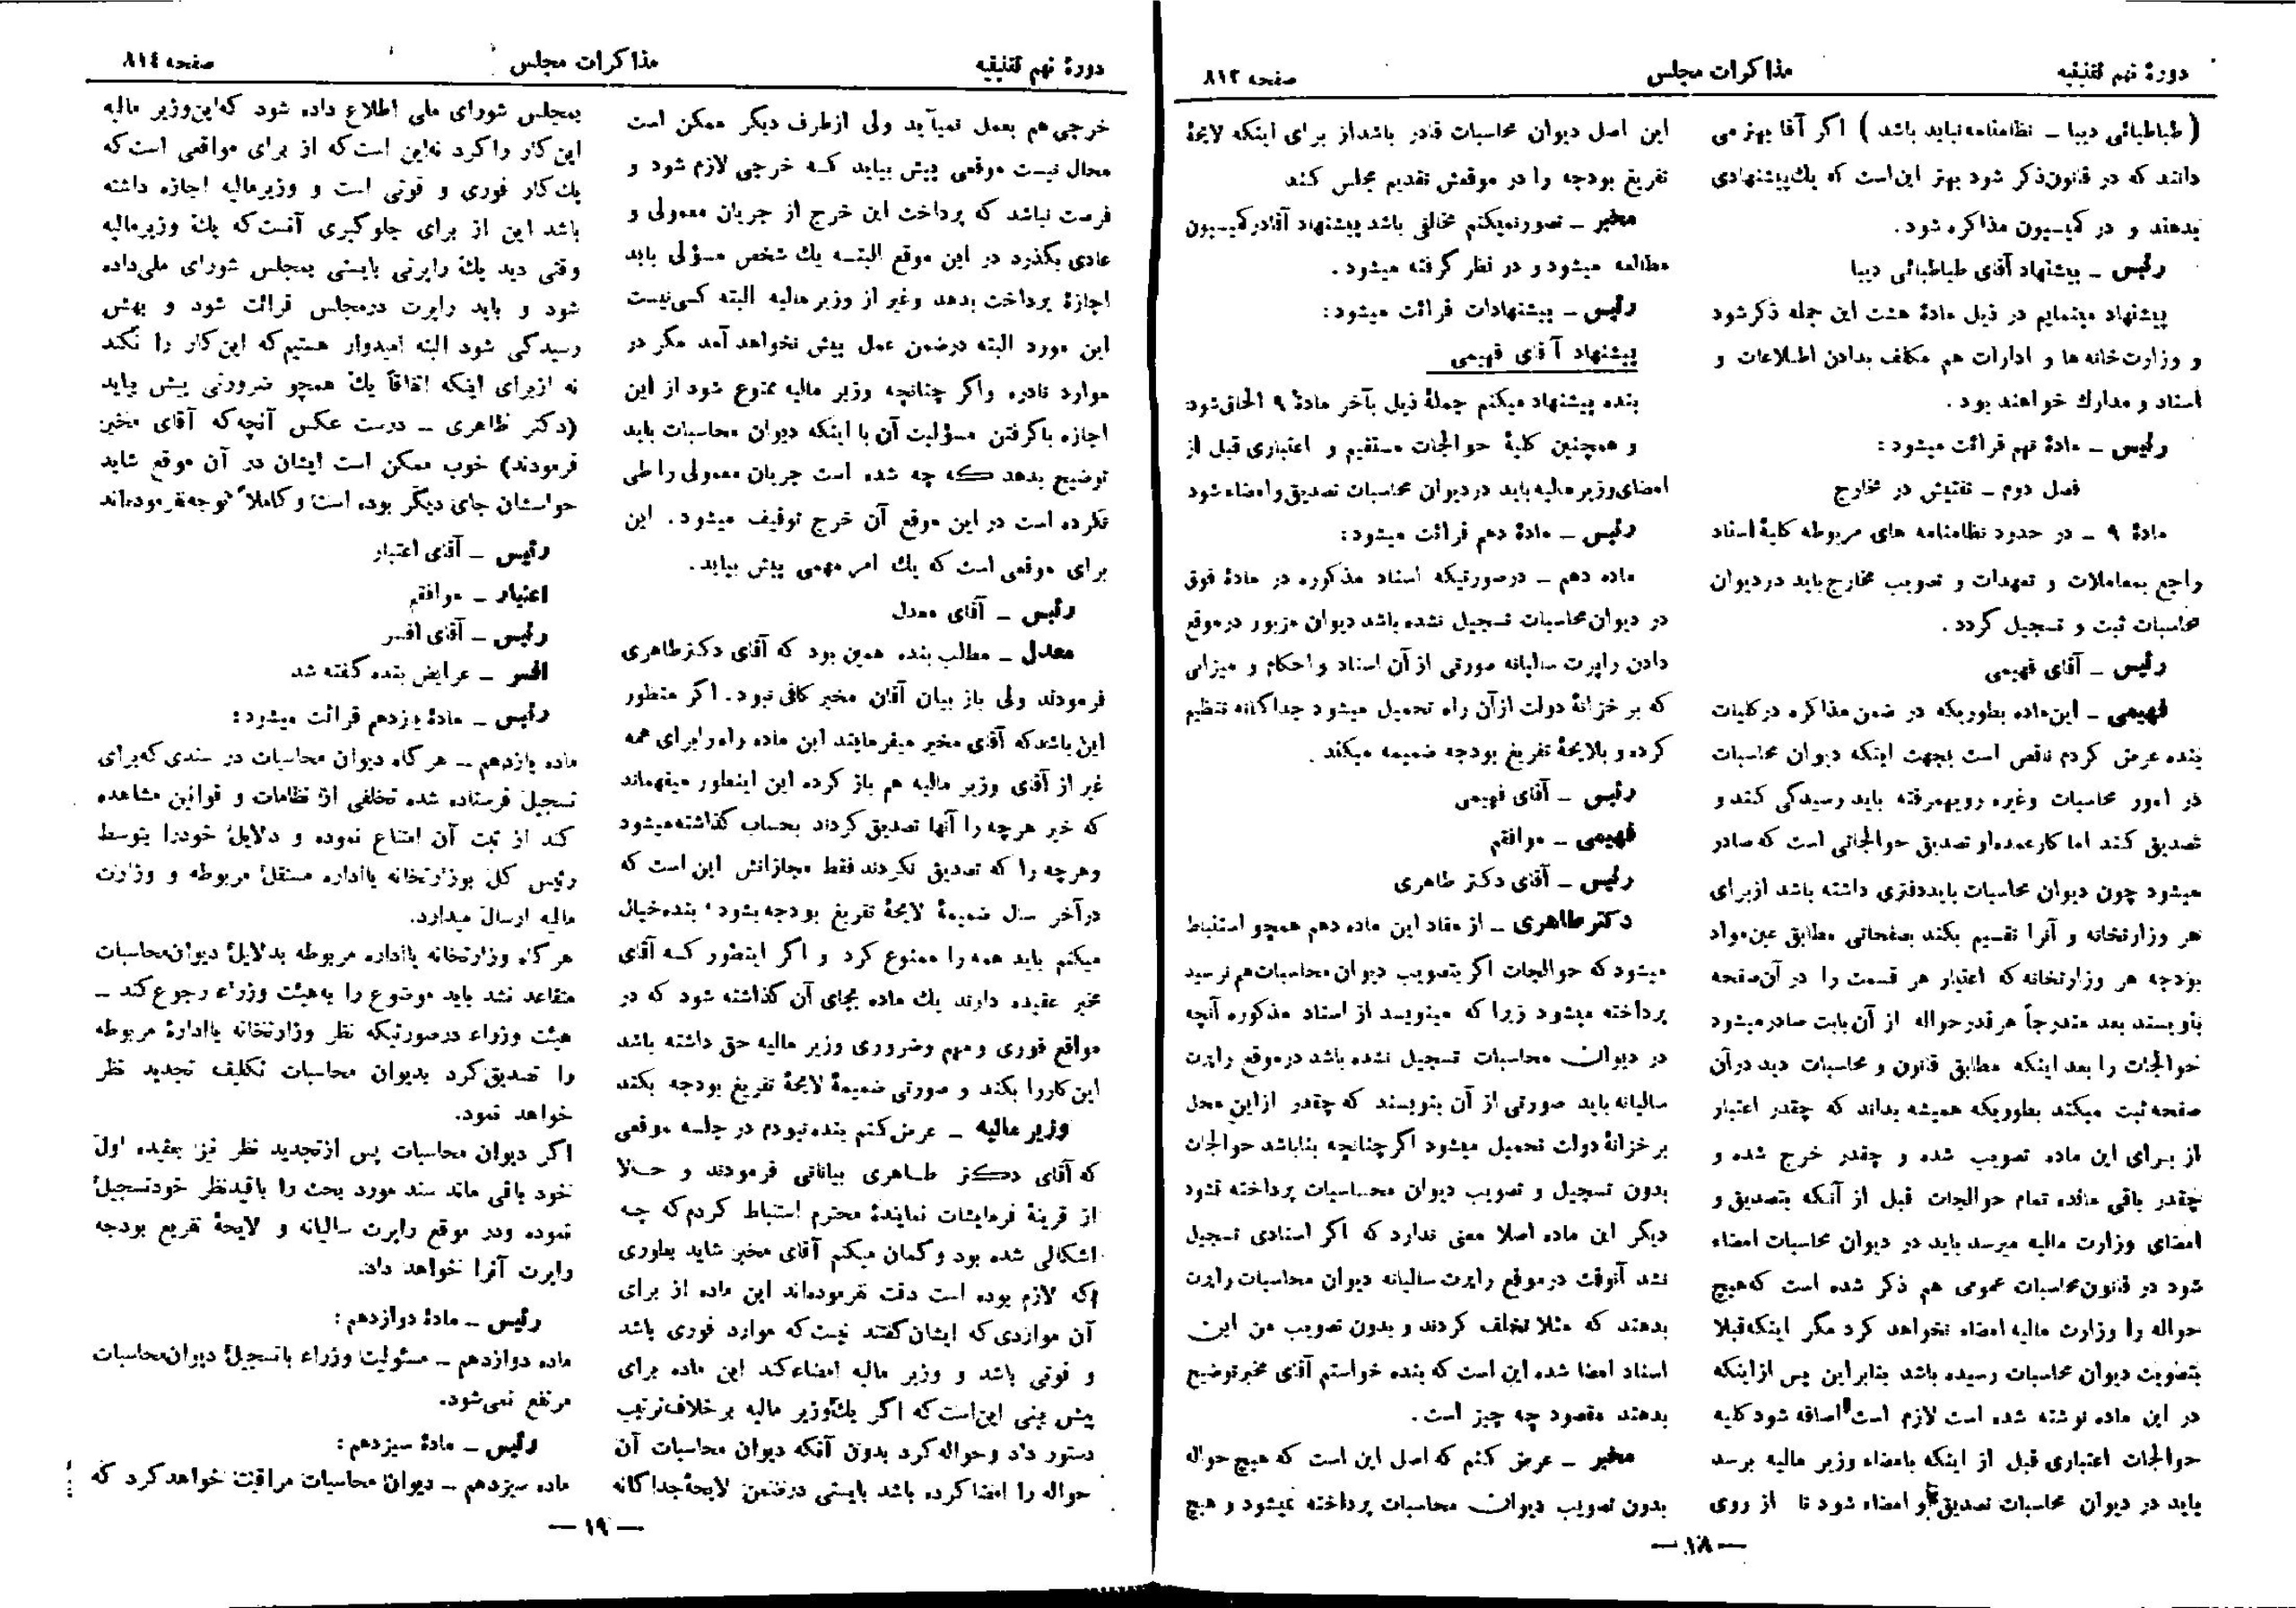 دورهٔ نهم تقنینیه
مذاکرات مجلس
صفحه ۸۱۳
(طباطبائی دیبا ـ نظامنامه نباید باشد) اگر آقا بهتر می
دانند که در قانون ذکر شود بهتر این است که یك پیشنهادی
بدهند و در کمیسیون مذاکره شود.
رئیس ـ پیشنهاد آقای طباطبائی دیبا
پیشنهاد مینمایم در ذیل مادهٔ هشت این جمله ذکر شود
و وزارت خانه ها و ادارات هم مکلف بدادن اطلاعات و
اسناد و مدارك خواهند بود.
رئیس ـ مادهٔ نهم قرائت میشود:
فصل دوم ـ تفتیش در مخارج
مادهٔ ۹ ـ در حدود نظامنامه های مربوطه کلیهٔ اسناد
راجع بمعاملات و تعهدات و تصویب مخارج باید در دیوان
محاسبات ثبت و تسجیل گردد.
رئیس ـ آقای فهیمی
فهیمی ـ این ماده بطوریکه در ضمن مذاکره در کلیات
بنده عرض کردم ناقص است بجهت اینکه دیوان محاسبات
در امور محاسبات وغیره رویهمرفته باید رسیدگی کند و
تصدیق کند اما کار عمدهٔ او تصدیق حوالجاتی است که صادر
میشود چون دیوان محاسبات باید دفتری داشته باشد از برای
هر وزارتخانه و آنرا تقسیم بکند بصفحاتی مطابق عین مواد
بودجه هر وزارتخانه که اعتبار هر قسمت را در آن صفحه
بنویسند بعد متدرجاً هر قدر حواله از آن بابت صادر میشود
حوالجات را بعد اینکه مطابق قانون و محاسبات دید در آن
صفحه ثبت میکند بطوریکه همیشه بداند که چقدر اعتبار
از برای این ماده تصویب شده و چقدر خرج شده و
چقدر باقی مانده تمام حوالجات قبل از آنکه بتصدیق و
امضای وزارت مالیه میرسد باید در دیوان محاسبات امضاء
شود در قانون محاسبات عمومی هم ذکر شده است که هیچ
حواله را وزارت مالیه امضاء نخواهد کرد مگر اینکه قبلا
بتصویب دیوان محاسبات رسیده باشد بنابراین پس از اینکه
در این ماده نوشته شده است لازم است اضافه شود کلیه
حوالجات اعتباری قبل از اینکه بامضاء وزیر مالیه برسد
باید در دیوان محاسبات تصدیق و امضاء شود تا از روی
این اصل دیوان محاسبات قادر باشد از برای اینکه لایحهٔ
تفریغ بودجه را در موقعش تقدیم مجلس کند
مخبر ـ تصور نمیکنم مخالفی باشد پیشنهاد آقا در کمیسیون
مطالعه میشود و در نظر گرفته میشود.
رئیس ـ پیشنهادات قرائت میشود:
پیشنهاد آقای فهیمی
بنده پیشنهاد میکنم جملهٔ ذیل بآخر مادهٔ ۹ الحاق شود:
و همچنین کلیهٔ حوالجات مستقیم و اعتباری قبل از
امضای وزیر مالیه باید در دیوان محاسبات تصدیق و امضاء شود
رئیس ـ مادهٔ دهم قرائت میشود:
ماده دهم ـ درصورتیکه اسناد مذکوره در مادهٔ فوق
در دیوان محاسبات تسجیل نشده باشد دیوان مزبور در موقع
دادن راپرت سالیانه صورتی از آن اسناد و احکام و میزانی
که بر خزانهٔ دولت از آن راه تحمیل میشود جداگانه تنظیم
کرده و بلایحهٔ تفریغ بودجه ضمیمه میکند.
رئیس ـ آقای فهیمی
فهیمی ـ موافقم
رئیس ـ آقای دکتر طاهری
دکتر طاهری ـ از مفاد این ماده دهم همچو استنباط
میشود که حوالجات اگر بتصویب دیوان محاسبات هم نرسید
پرداخته میشود زیرا که مینویسد از اسناد مذکوره آنچه
در دیوان محاسبات تسجیل نشده باشد در موقع راپرت
سالیانه باید صورتی از آن بنویسند که چقدر از این محل
بر خزانهٔ دولت تحمیل میشود اگر چنانچه بنا باشد حوالجات
بدون تسجیل و تصویب دیوان محاسبات پرداخته نشود
دیگر این ماده اصلا معنی ندارد که اگر اسنادی تسجیل
نشد آنوقت در موقع راپرت سالیانه دیوان محاسبات راپرت
بدهند که مثلا تخلف کردند و بدون تصویب من این
اسناد امضا شده این است که بنده خواستم آقای مخبر توضیح
بدهند مقصود چه چیز است.
مخبر ـ عرض کنم که اصل این است که هیچ حواله
بدون تصویب دیوان محاسبات پرداخته نمیشود و هیچ
— ۱۸ —
دورهٔ نهم تقنینیه
مذاکرات مجلس
صفحه ۸۱٤
خرجی هم بعمل نمیآید ولی از طرف دیگر ممکن است
محال نیست موقعی پیش بیاید که خرجی لازم شود و
فرصت نباشد که پرداخت این خرج از جریان معمولی و
عادی بگذرد در این موقع البته یك شخص مسؤلی باید
اجازهٔ پرداخت بدهد وغیر از وزیر مالیه البته کسی نیست
این مورد البته در ضمن عمل پیش نخواهد آمد مگر در
موارد نادره واگر چنانچه وزیر مالیه ممنوع شود از این
اجازه با گرفتن مسؤلیت آن با اینکه دیوان محاسبات باید
توضیح بدهد که چه شده است جریان معمولی را طی
نکرده است در این موقع آن خرج توقیف میشود. این
برای موقعی است که یك امر مهمی پیش بیاید.
رئیس ـ آقای معدل
معدل ـ مطالب بنده همین بود که آقای دکتر طاهری
فرمودند ولی باز بیان آقای مخبر کافی نبود. اگر منظور
این باشد که آقای مخبر میفرمایند این ماده راه را برای همه
غیر از آقای وزیر مالیه هم باز کرده این اینطور میفهماند
که خیر هرچه را آنها تصدیق کردند بحساب گذاشته میشود
وهرچه را که تصدیق نکردند فقط مجازاتش این است که
در آخر سال ضمیمهٔ لایحهٔ تفریغ بودجه بشود، بنده خیال
میکنم باید همه را ممنوع کرد و اگر اینطور که آقای
مخبر عقیده دارند یك ماده بجای آن گذاشته شود که در
مواقع فوری و مهم وضروری وزیر مالیه حق داشته باشد
این کار را بکند و صورتی ضمیمهٔ لایحهٔ تفریغ بودجه بکند
وزیر مالیه ـ عرض کنم بنده نبودم در جلسه موقعی
که آقای دکتر طاهری بیاناتی فرمودند و حالا
از قرینهٔ فرمایشات نمایندهٔ محترم استنباط کردم که چه
اشکالی شده بود و گمان میکنم آقای مخبر شاید بطوری
که لازم بوده است دقت نفرموده‌اند این ماده از برای
آن مواردی که ایشان گفتند نیست که موارد فوری باشد
و فوتی باشد و وزیر مالیه امضاء کند این ماده برای
پیش بینی این است که اگر یك وزیر مالیه بر خلاف ترتیب
دستور داد و حواله کرد بدون آنکه دیوان محاسبات آن
حواله را امضا کرده باشد بایستی در ضمن لایحهٔ جداگانه
بمجلس شورای ملی اطلاع داده شود که این وزیر مالیه
این کار را کرد نه این است که از برای مواقعی است که
یك کار فوری و فوتی است و وزیر مالیه اجازه داشته
باشد این از برای جلوگیری آنست که یك وزیر مالیه
وقتی دید یك راپرتی بایستی بمجلس شورای ملی داده
شود و باید راپرت در مجلس قرائت شود و بهش
رسیدگی شود البته امیدوار هستیم که این کار را نکند
نه از برای اینکه اتفاقاً یك همچو ضرورتی پیش بیاید
(دکتر طاهری ـ درست عکس آنچه که آقای مخبر
فرمودند) خوب ممکن است ایشان در آن موقع شاید
حواسشان جای دیگر بوده است و کاملاً توجه نفرموده‌اند
رئیس ـ آقای اعتبار
اعتبار ـ موافقم
رئیس ـ آقای افسر
افسر ـ عرایض بنده گفته شد
رئیس ـ مادهٔ یازدهم قرائت میشود:
ماده یازدهم ـ هر گاه دیوان محاسبات در سندی که برای
تسجیل فرستاده شده تخلفی از نظامات و قوانین مشاهده
کند از ثبت آن امتناع نموده و دلایل خود را بتوسط
رئیس کل بوزارتخانه یا اداره مستقل مربوطه و وزارت
مالیه ارسال میدارد.
هر گاه وزارتخانه یا اداره مربوطه بدلایل دیوان محاسبات
متقاعد نشد باید موضوع را به هیئت وزراء رجوع کند ـ
هیئت وزراء درصورتیکه نظر وزارتخانه یا ادارهٔ مربوطه
را تصدیق کرد بدیوان محاسبات تکلیف تجدید نظر
خواهد نمود.
اگر دیوان محاسبات پس از تجدید نظر نیز بعقیده اول
خود باقی ماند سند مورد بحث را با قید نظر خود تسجیل
نموده ودر موقع راپرت سالیانه و لایحهٔ تفریع بودجه
راپرت آنرا خواهد داد.
رئیس ـ مادهٔ دوازدهم:
ماده دوازدهم ـ مسئولیت وزراء با تسجیل دیوان محاسبات
مرتفع نمی‌شود.
رئیس ـ مادهٔ سیزدهم:
ماده سیزدهم ـ دیوان محاسبات مراقبت خواهد کرد که
— ۱۹ —